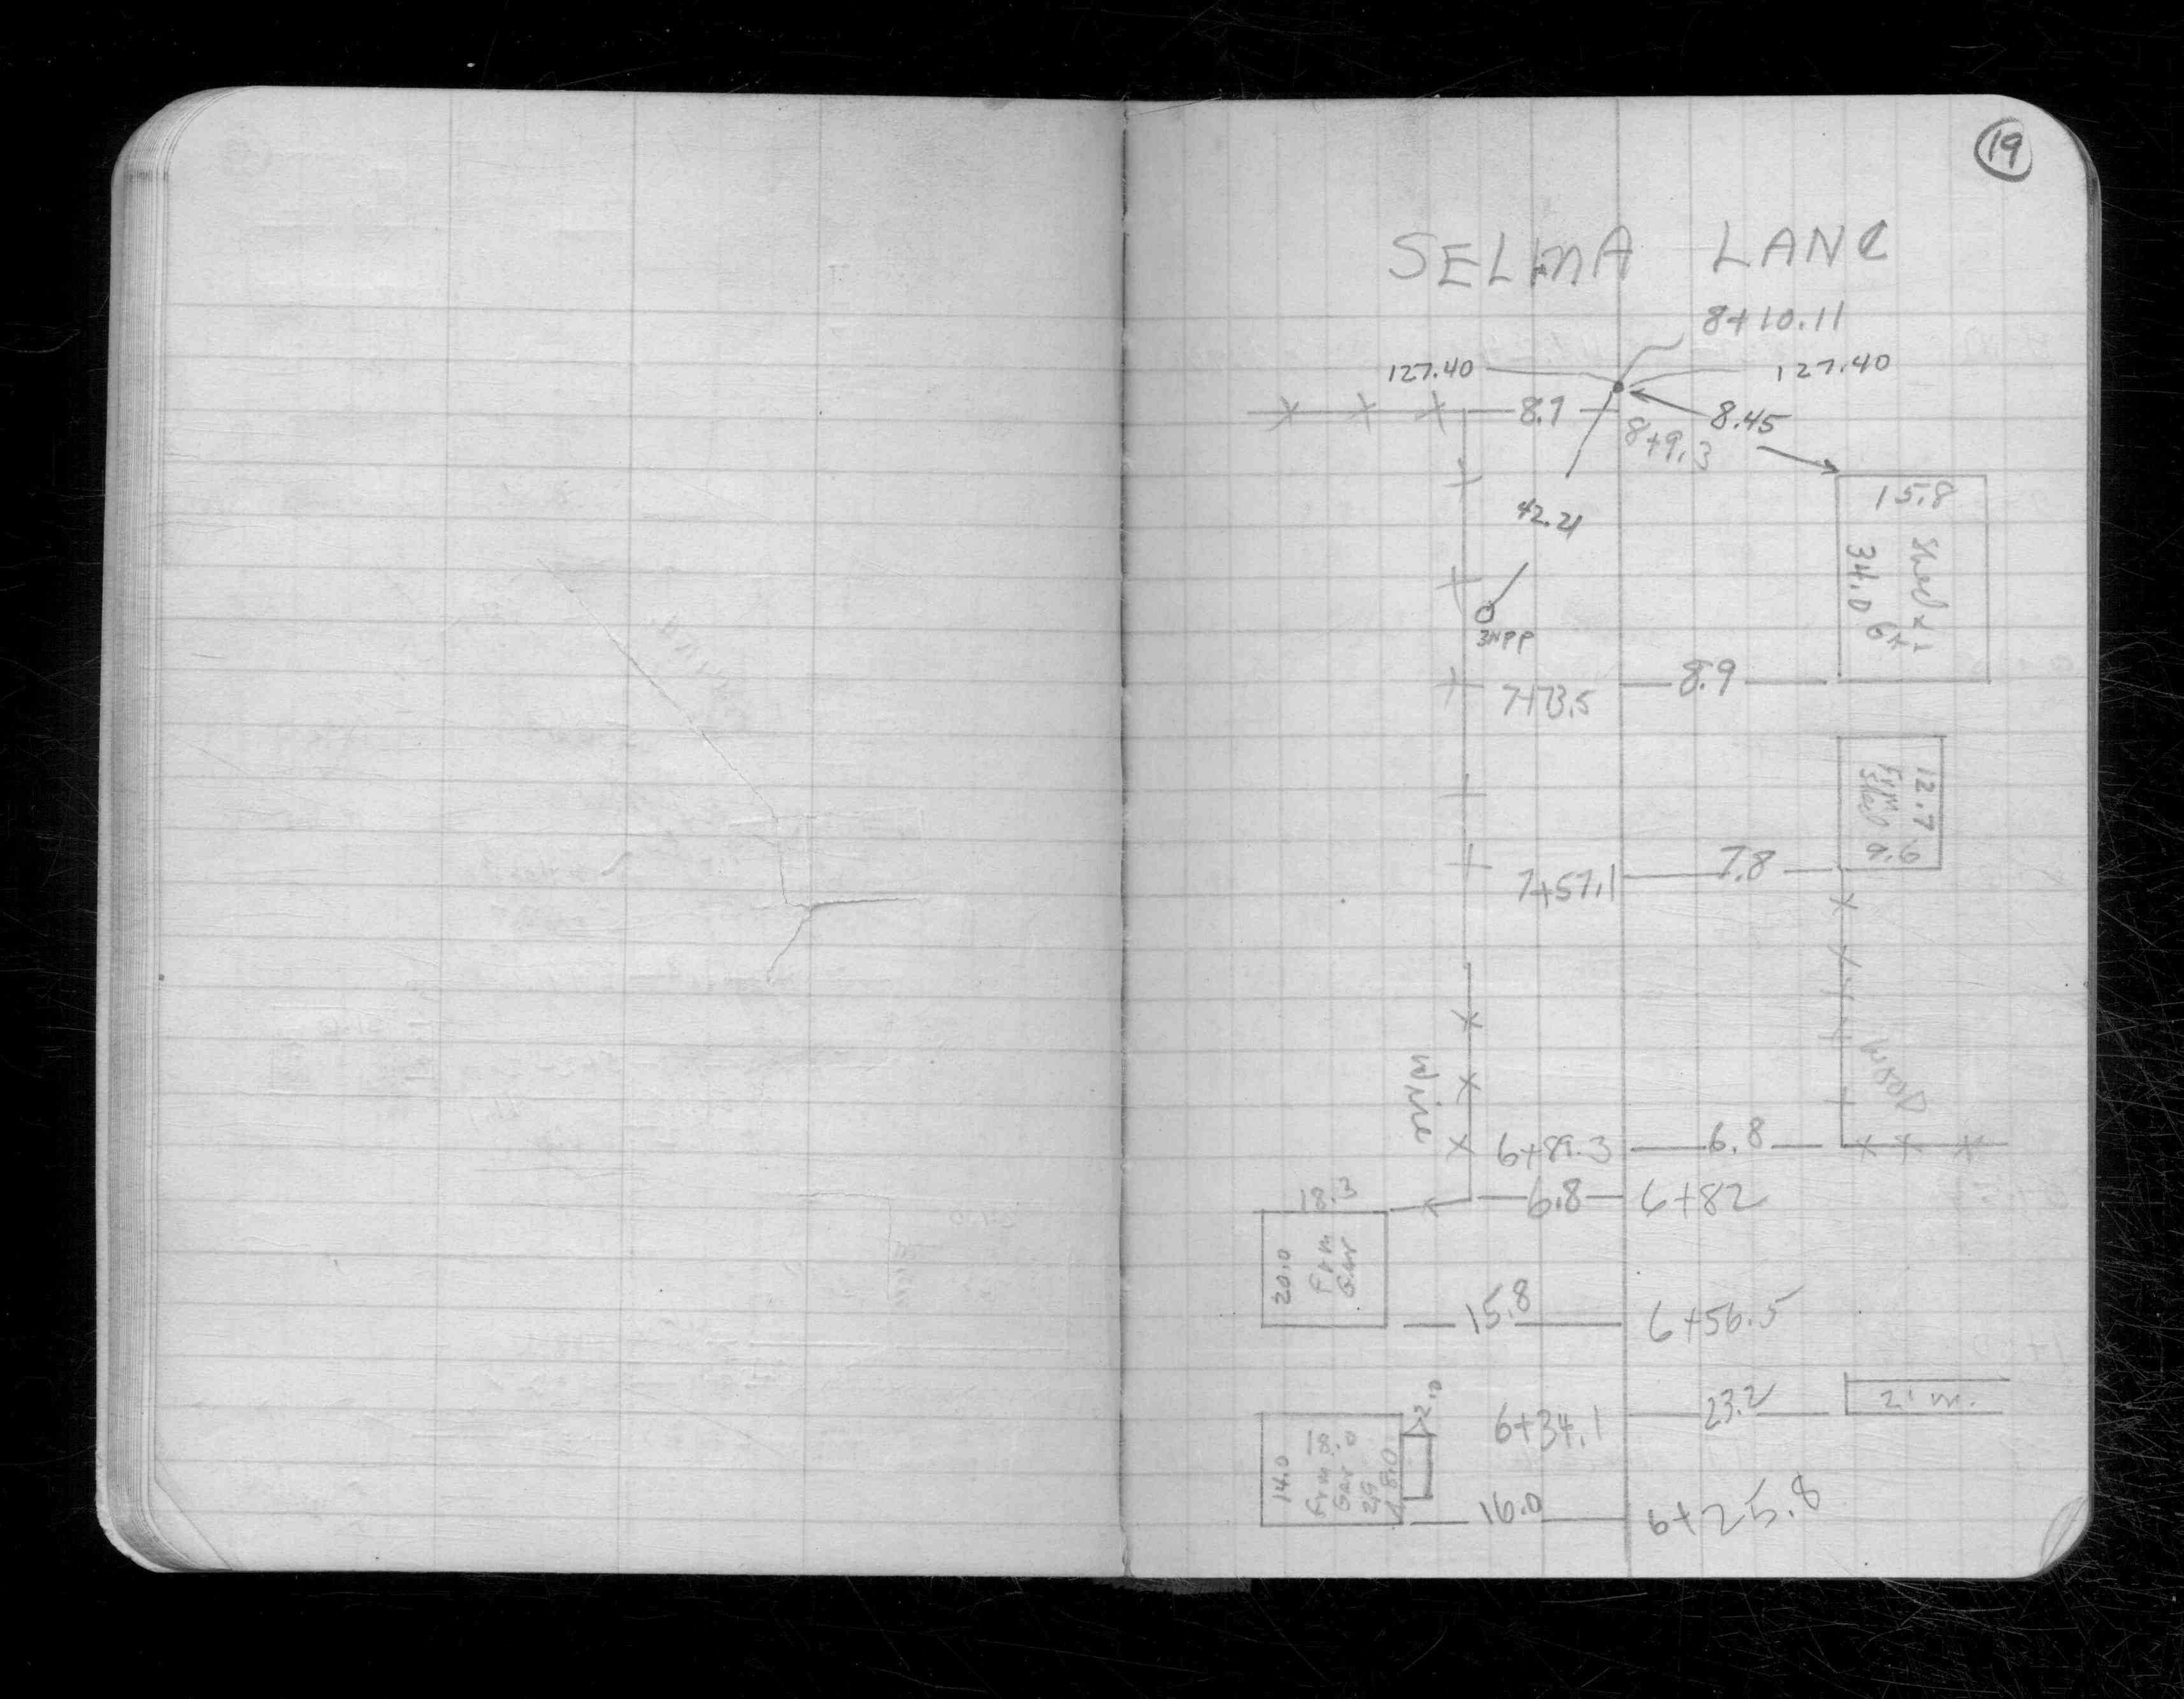 19
SELMA LANE
8+10.11
127.40 127.40
8.7 8.45
8+9.3
15.8
34.0
42.21
3NPP
8.9
7+73.5
12.7
Frm
Shed
9.6
7.8
7+57.1
wire
6+89.3 6.8
18.3
6.8 6+82
20.0
Frm
Gar
15.8 6+56.5
2.0
6+34.1 23.2
14.0
Frm
Gar
18.0
8.0
16.0 6+25.8